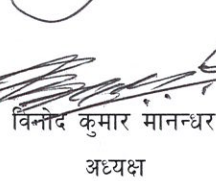 विनोद कुमार मानन्धर
अध्यक्ष